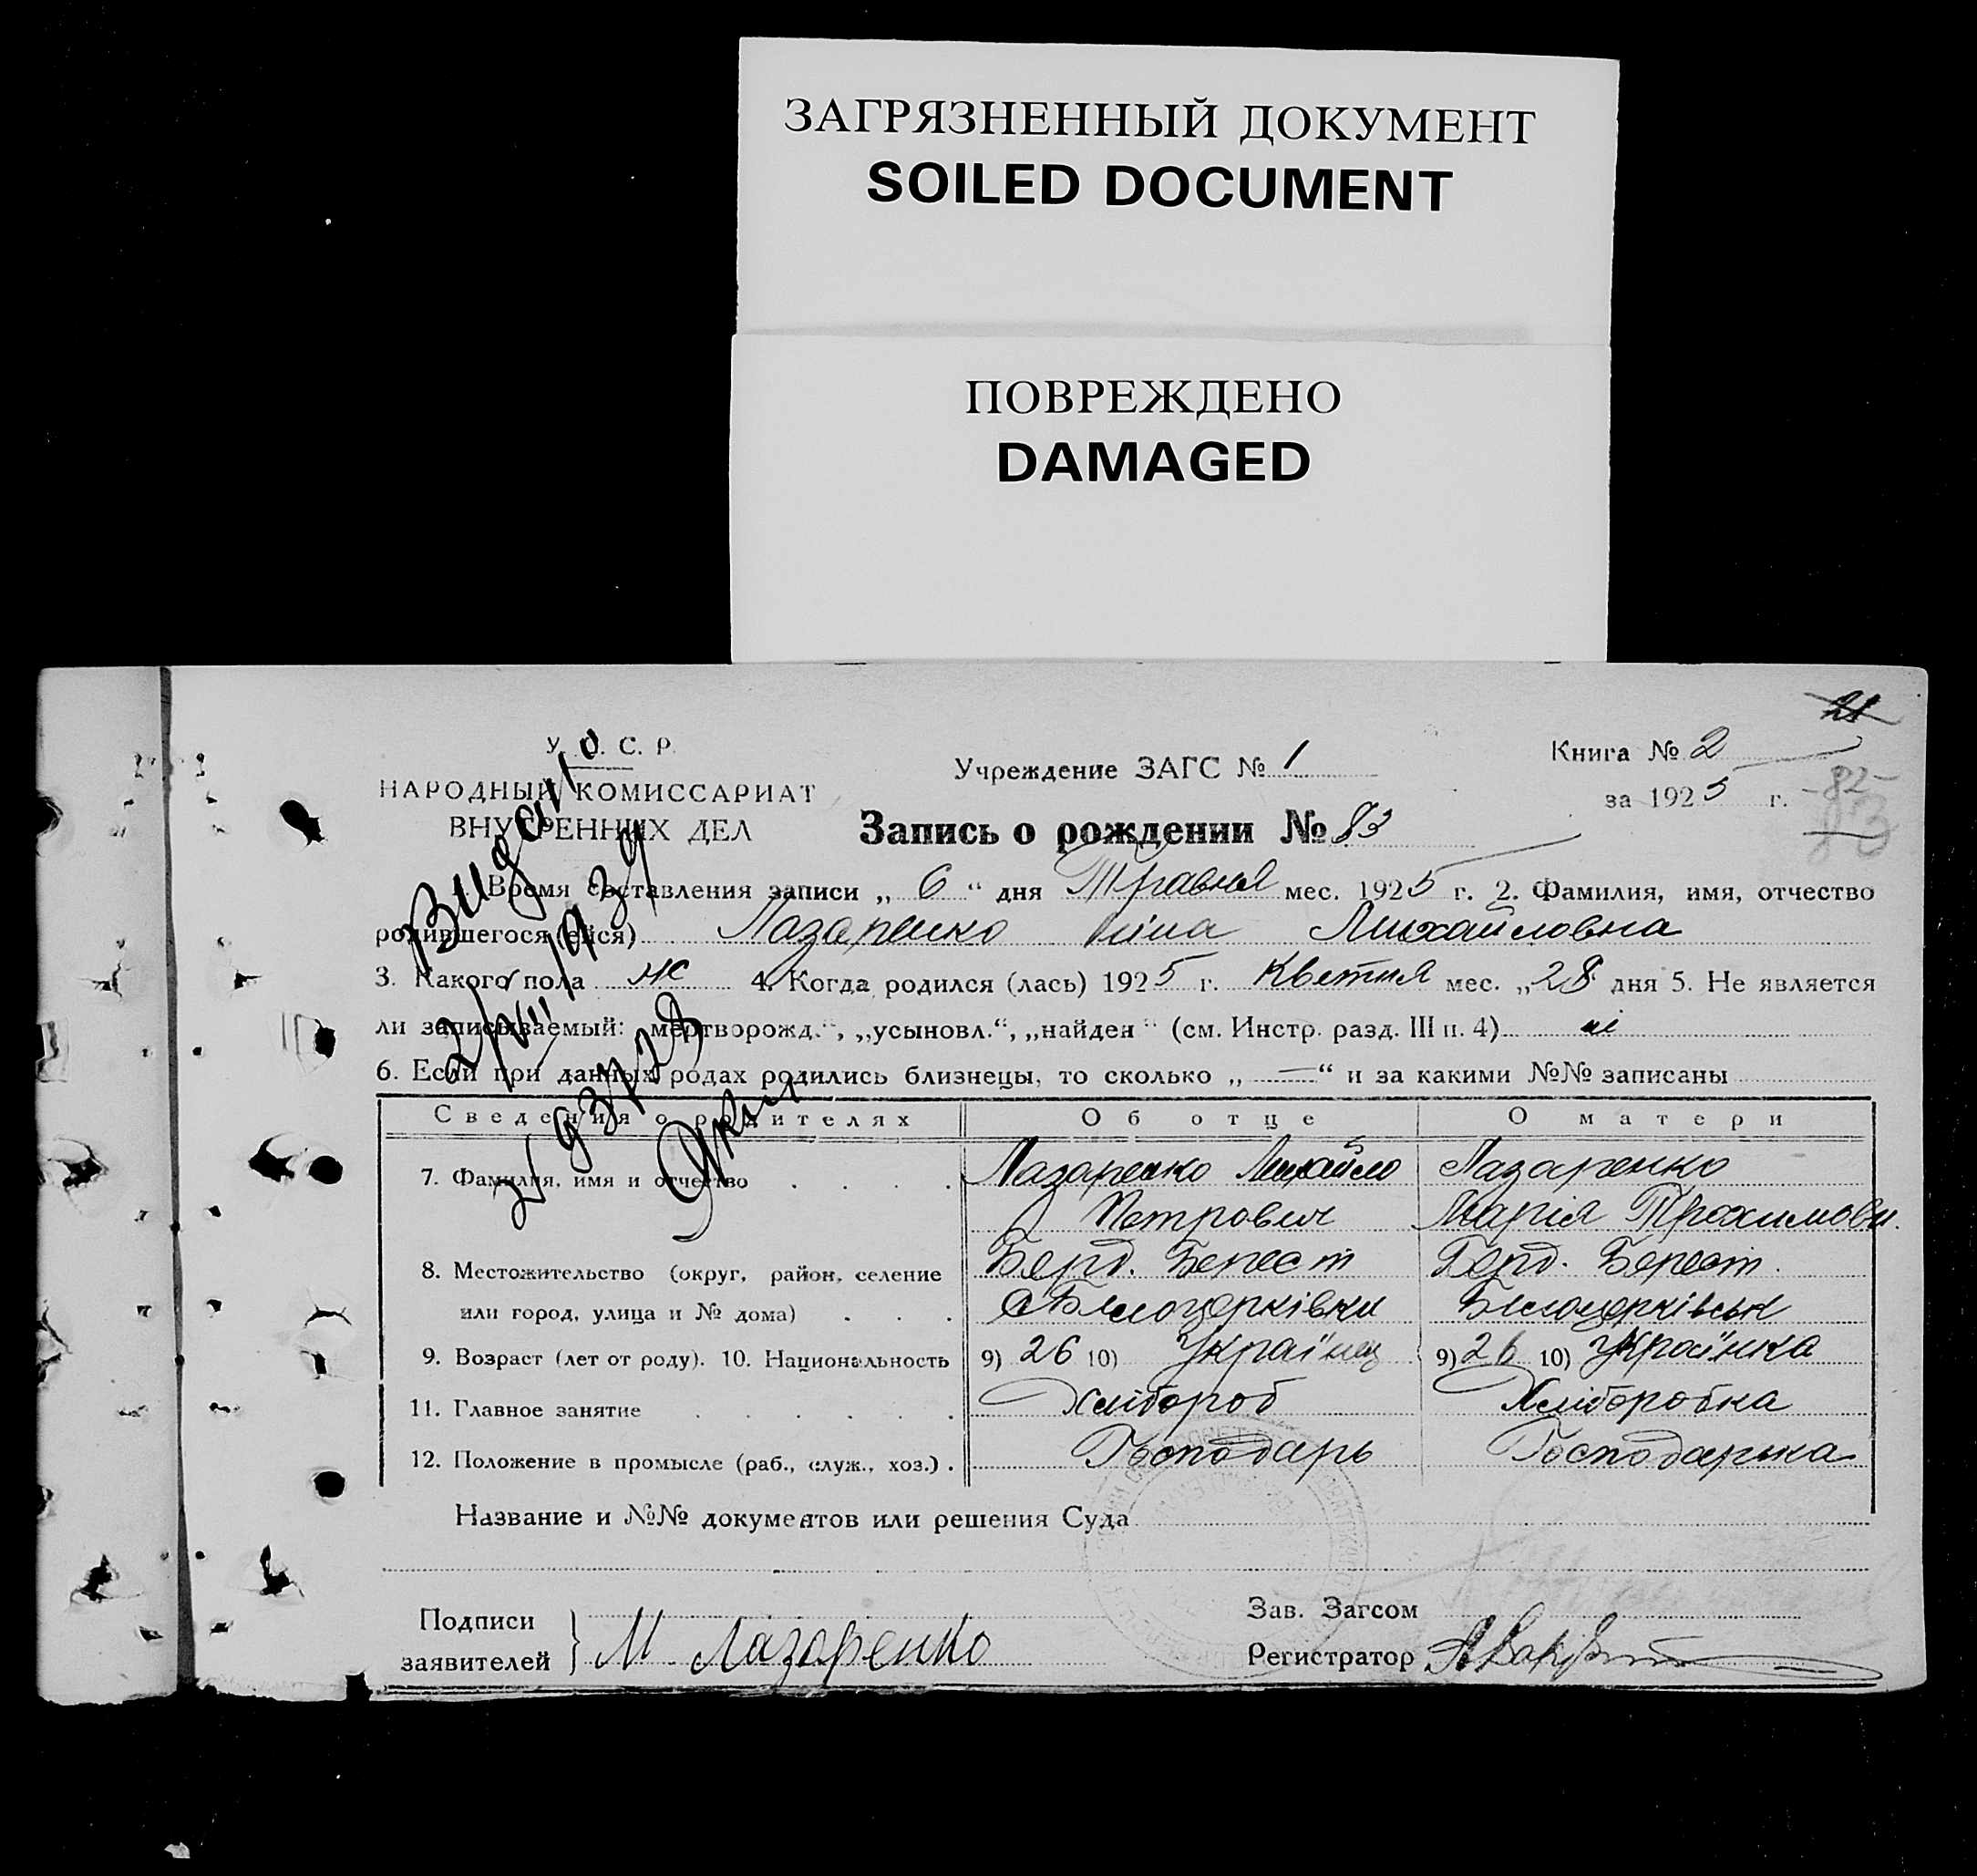 ЗАГРЯЗНЕННЫЙ ДОКУМЕНТ
SOILED DOCUMENT
ПОВРЕЖДЕНО
DAMAGED
21
У. С. С. Р.
НАРОДНЫЙ КОМИССАРИАТ
ВНУТРЕННИХ ДЕЛ
Учреждение ЗАГС № 1
Книга № 2
за 1925 г.
82
83
Запись о рождении № 83
1. Время составления записи „ 6 “ дня Травня мес. 1925 г. 2. Фамилия, имя, отчество
родившегося (ейся) Лазаренко Ніна Михайловна
3. Какого пола ж 4. Когда родился (лась) 1925 г. Квітня мес. „28 дня 5. Не является
ли записываемый: „мертворожд.“, „усыновл.“, „найден“ (см. Инстр. разд. III п. 4) ні
6. Если при данных родах родились близнецы, то сколько „ — “ и за какими №№ записаны
Видано
Сведения о родителях Об отце О матери
7. Фамилия, имя и отчество Лазаренко Михайло Лазаренко
Петрович Марія Трохимовн.
8. Местожительство (округ, район, селение Берд. Берест Берд. Берест.
или город, улица и № дома) с Білоцерківки Білоцерківськ
9. Возраст (лет от роду). 10. Национальность 9) 26 10) Українец 9) 26 10) Українка
11. Главное занятие Хлібороб Хліборобка
12. Положение в промысле (раб., служ., хоз.) Господарь Господарька
Название и №№ документов или решения Суда
Подписи
заявителей } М Лазаренко
Зав. Загсом
Регистратор